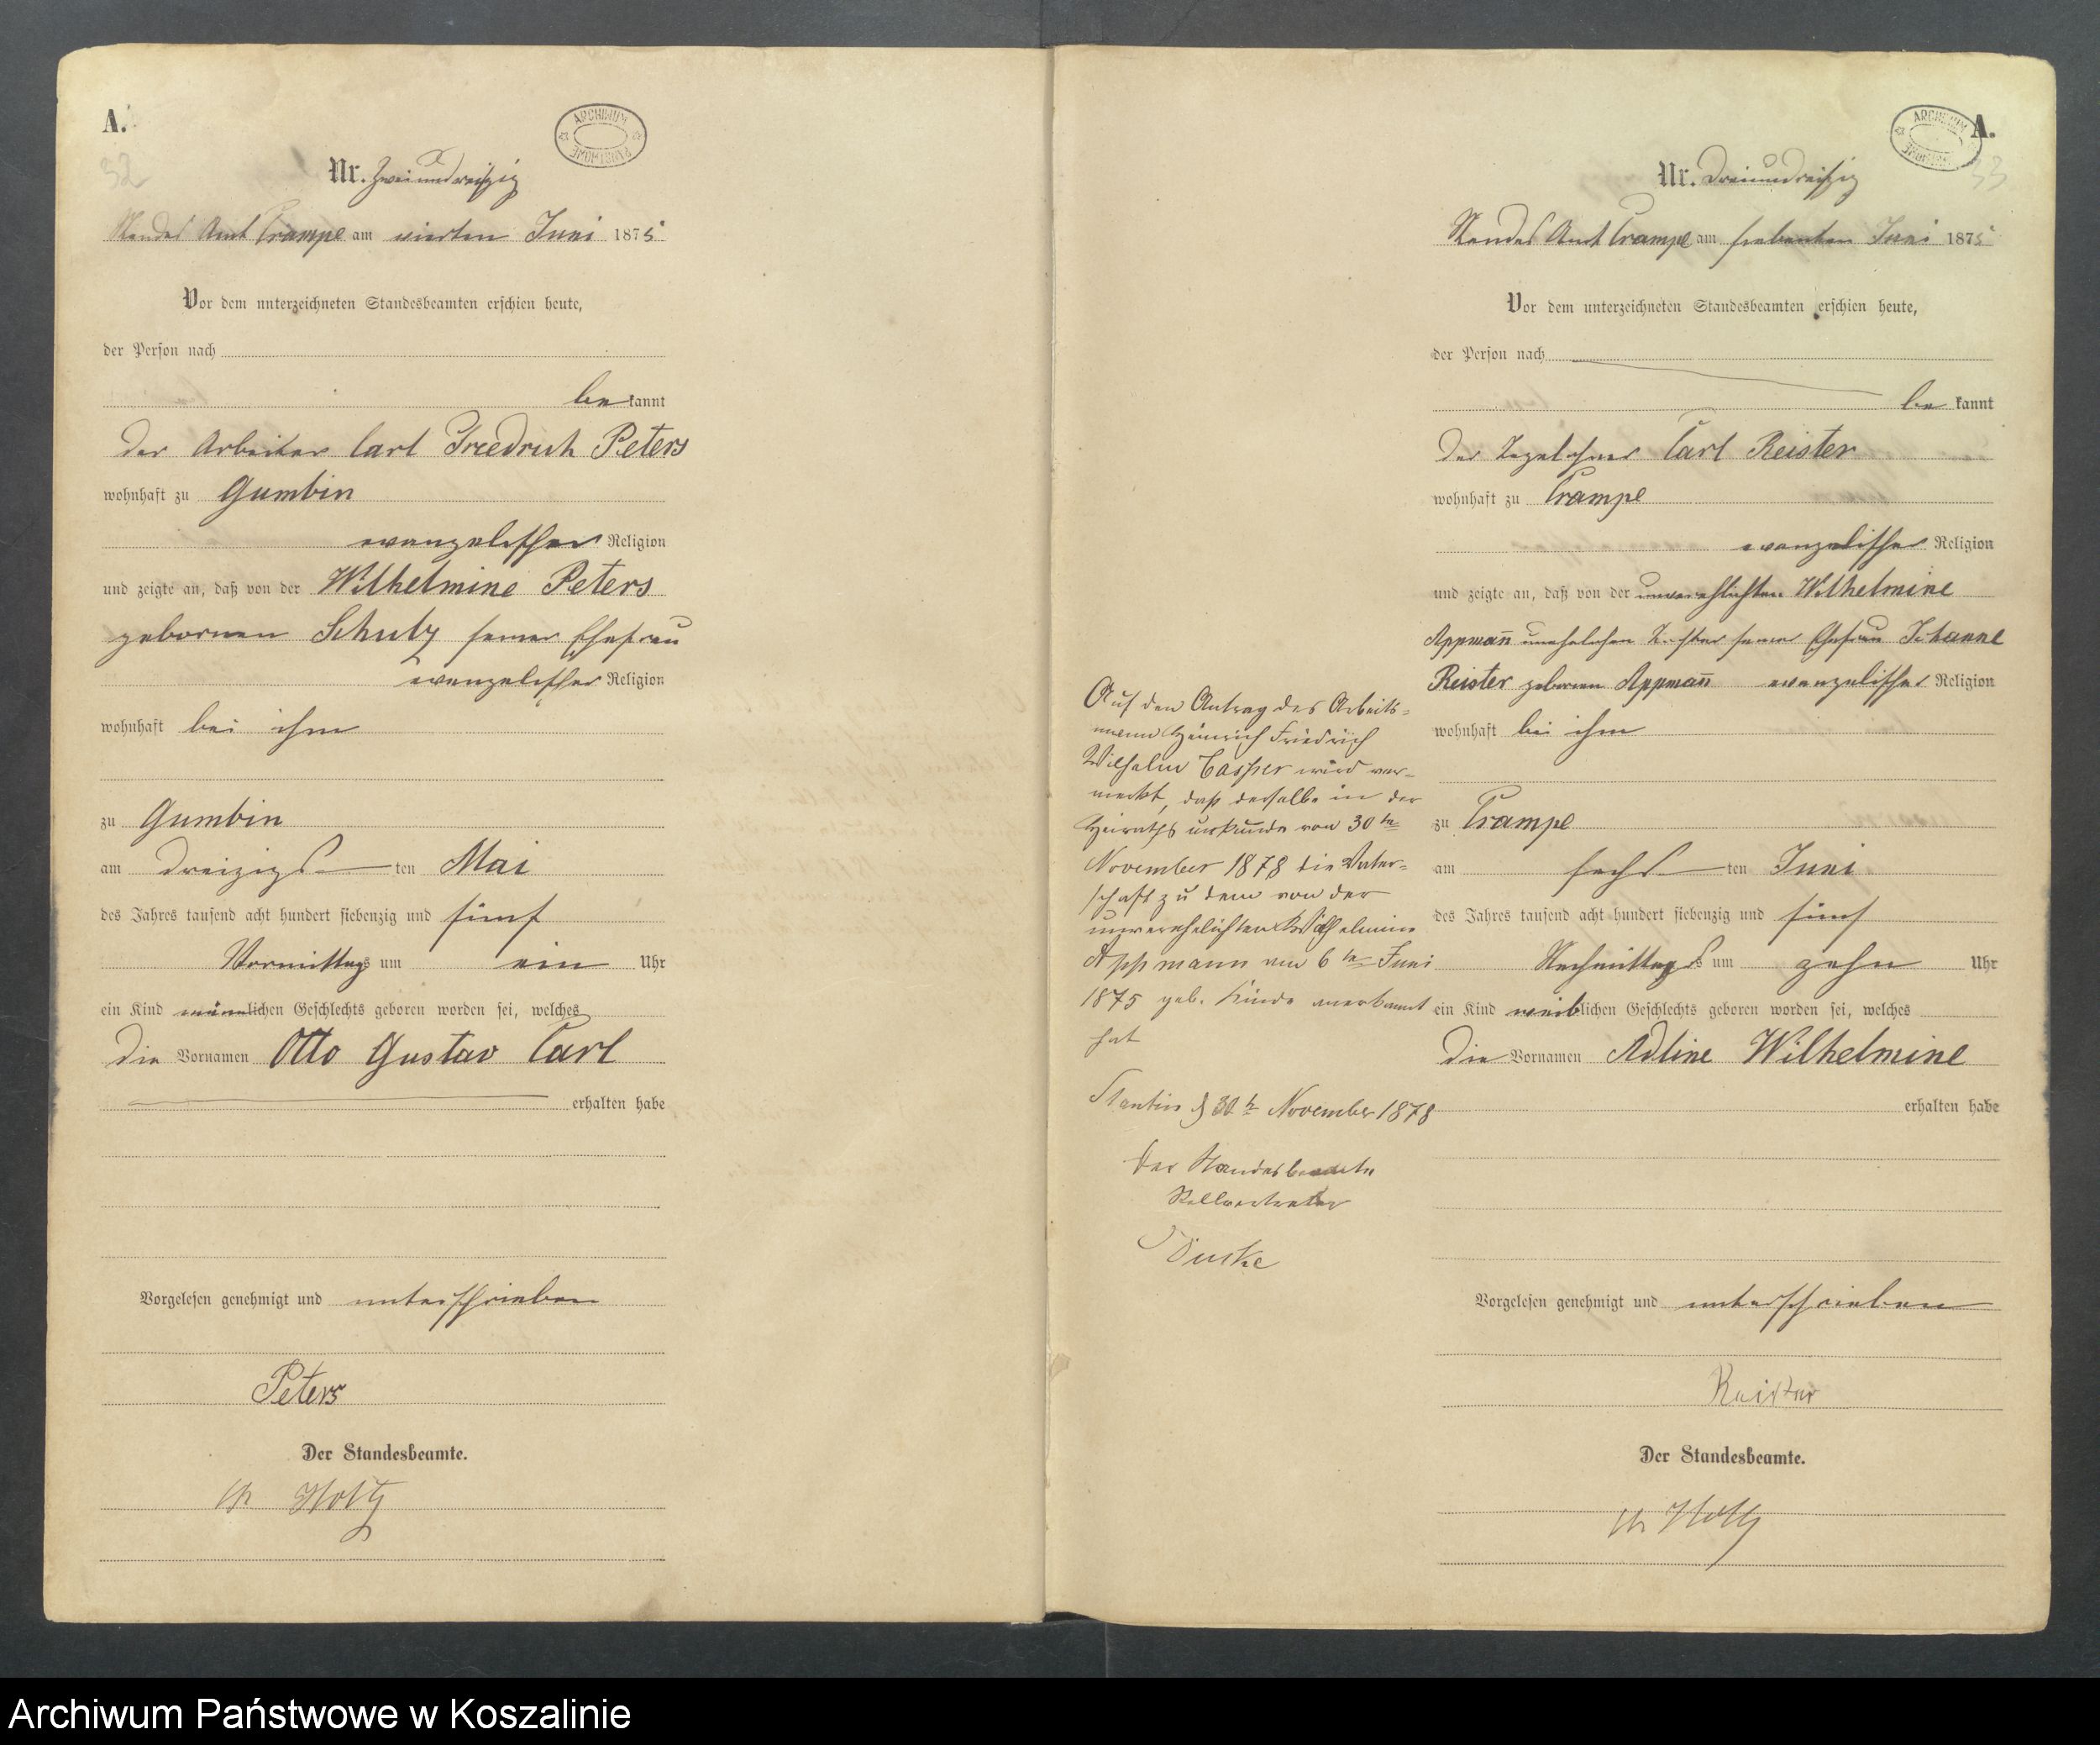 A.
ARCHIWUM PAŃSTWOWE
32
Nr. Zweiunddreißig
Standes Amt Crampe am vierten Juni 1875
Vor dem unterzeichneten Standesbeamten erschien heute,
der Person nach
bekannt
der Arbeiter Carl Friedrich Peters
wohnhaft zu Gumbin
evangelischer Religion
und zeigte an, daß von der Wilhelmine Peters
gebornen Schulz seiner Ehefrau
evangelischer Religion
wohnhaft bei ihm
zu Gumbin
am dreizigs ten Mai
des Jahres tausend acht hundert siebenzig und fünf
Vormittags um ein Uhr
ein Kind männlichen Geschlechts geboren worden sei, welches
die Vornamen Otto Gustav Carl
erhalten habe
Vorgelesen genehmigt und unterschrieben
Peters
Der Standesbeamte.
Holtz
Auf den Antrag des Arbeits-
mann Heinrich Friedrich
Wilhelm Casper wird ver-
merkt, daß derselbe in der
Heiraths urkunde vom 30ten
November 1878 die Vater-
schaft zu dem von der
unverehelichten Wilhelmine
Appmann am 6ten Juni
1875 geb. Kinde anerkannt
hat
30t November 1878
Der Standesbeamte
Stellvertreter
A.
ARCHIWUM PAŃSTWOWE
33
Nr. Dreiunddreißig
Standes Amt Crampe am siebenten Juni 1875
Vor dem unterzeichneten Standesbeamten erschien heute,
der Person nach
bekannt
der Tagelöhner Carl Reister
wohnhaft zu Crampe
evangelischer Religion
und zeigte an, daß von der unverehlichten Wilhelmine
Appmañ unehelichen Tochter seiner Ehefrau Johanne
Reister geboren Appmañ evangelischer Religion
wohnhaft bei ihm
zu Crampe
am sechs ten Juni
des Jahres tausend acht hundert siebenzig und fünf
Nachmittags um zehn Uhr
ein Kind weiblichen Geschlechts geboren worden sei, welches
die Vornamen Adline Wilhelmine
erhalten habe
Vorgelesen genehmigt und unterschrieben
Reister
Der Standesbeamte.
Holtz
Archiwum Państwowe w Koszalinie